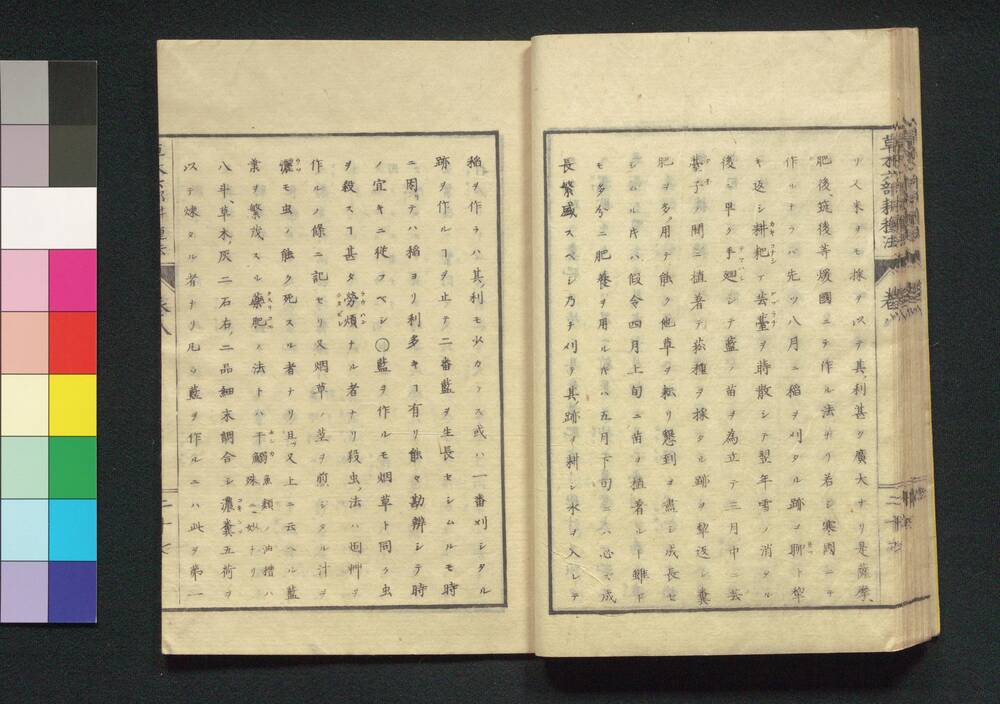 リ又米ヲモ採ヲ以テ其利甚タ廣大ナリ是薩摩、
肥後、筑後等煖國ニテ作ル法ナリ若シ寒國ニテ
作ルナラバ先ツ八月ニ稲ヲ刈タル跡ヲ聊ト犂
キ返シ耕耙テ芸薹ヲ蒔散シテ翌年雪ノ消タル
後ニ早ク手廻シテ藍ノ苗ヲ為立テ三月中ニ芸
薹子ノ間ニ植著テ菘種ヲ採タル跡ヲ犂返シ糞
肥ヲ多ク用テ能ク他草ヲ耘リ懇到ヲ盡シ成長セ
シムルキハ假令四月上旬ニ苗ヲ植著ルト雖ト
モ多分ニ肥養ヲ用ルキハ五月下旬ハ必ズ成
長繁盛スベシ乃チ刈リ其跡ヲ耕シ水ヲ入レテ
稲ヲ作ラハ其利モ少カラス或ハ一番刈シタル
跡ヲ作ルヿヲ止テ二番藍ヲ生長セシムルモ時
ニ因テハ稲ヨリ利多キヿ有リ能々勘辨シテ時
ノ宜キニ従フベシ〇藍ヲ作ルモ烟草ト同ク虫
ヲ殺スヿ甚タ勞煩ナル者ナリ殺虫ノ法ハ烟艸ヲ
作ルノ條ニ記セリ又烟草ノ莖ヲ煎シタル汁ヲ
灌モ虫ノ能ク死スル者ナリ且ツ又上ニ云ヘル藍
葉ヲ繁茂スル藥肥ノ法トハ干鰯魚類ノ油糟ハ殊ニ妙ナリ
八斗、草木ノ灰二石右ノ二品細末調合シ濃糞五荷ヲ
以テ煉タル者ナリ凡ソ藍ヲ作ルニハ此ヲ第一
草木六部耕種法